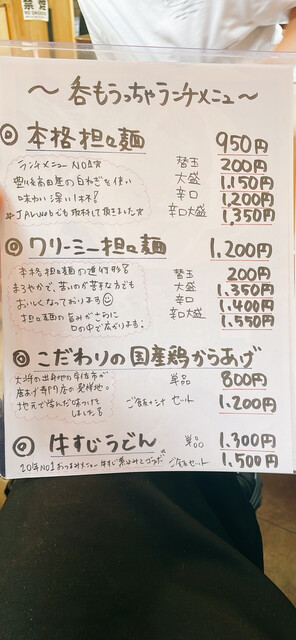 禁煙
～ 呑もうっちゃランチメニュー ～
◎ 本格担々麺 950円
ランチメニュー NO1☆ 替玉 200円
豊後高田産の白ねぎを使い 大盛 1,150円
味わい深い1杯? 辛口 1,200円
★JALwebでも取材して頂きました☆ 辛口大盛 1,350円
◎ クリーミー担々麺 1,200円
本格担々麺の進化形? 替玉 200円
まろやかで、苦いのが苦手な方でも 大盛 1,350円
おいしくなっております 辛口 1,400円
担々麺の旨みがさらに 辛口大盛 1,550円
口の中で広がります。
◎ こだわりの国産鶏からあげ
大将の出身地の宇佐市が 単品 800円
唐あげ専門店の発祥地。
地元で学んだ味つけで ご飯+汁セット 1,200円
しました?
◎ 牛すじうどん 単品 1,300円
20年NO1おつまみメニュー 牛すじ煮込みとコラボ ご飯セット 1,500円